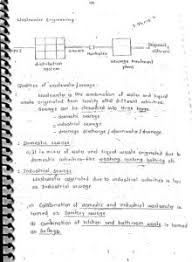 Wastewater Engineering
distribution system
Manholes
sewage treatment plant
Disposal,
Qualities of wastewater/sewage:-
Wastewater is the combination of water and liquid
waste originated from society after different activities.
Sewage can be classified into three types
- domestic sewage
- industrial sewage
- drainage discharge / stormwater/drainage.
1. Domestic sewage
It is mixer of water and liquid waste originated due to
domestic activities like washing, cooking, bathing etc
2. Industrial sewage
Wastewater originated due to industrial activities is known
as industrial sewage.
Combination of domestic and industrial wastewater is
termed as sanitary sewage
combination of kitchen and bathroom waste is termed
as sullage.